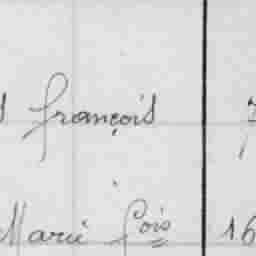 françois 7
Marie fois 16